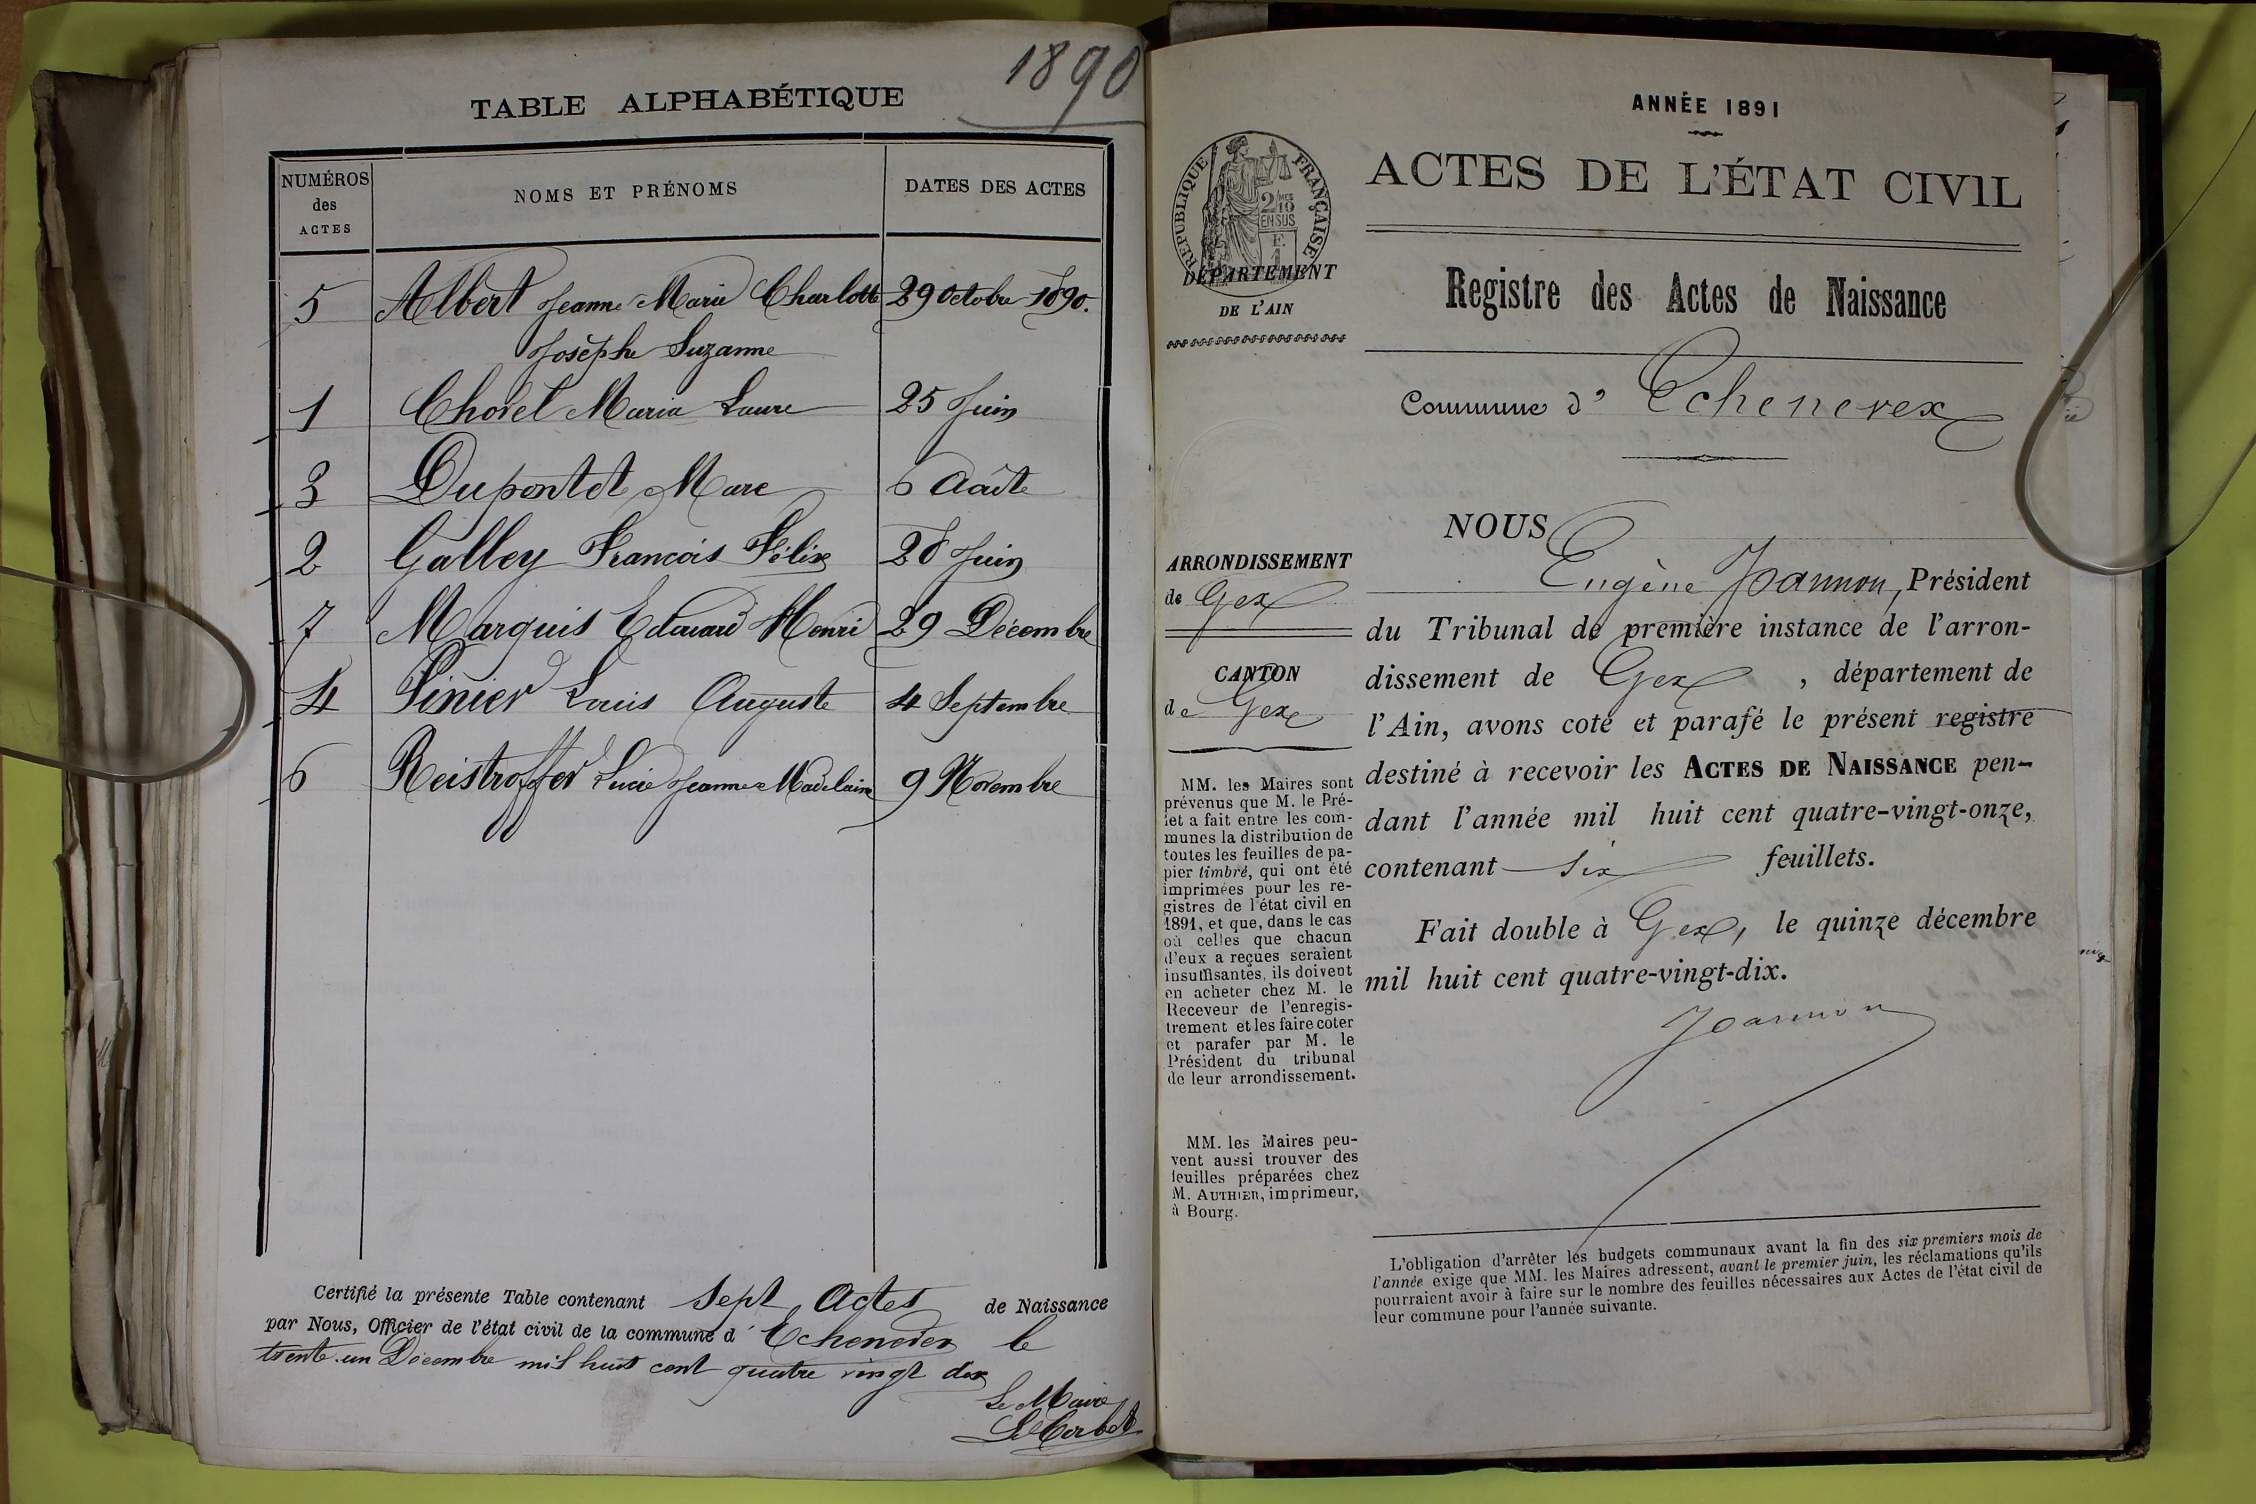 1890
TABLE ALPHABÉTIQUE
NUMÉROS
des
ACTES
NOMS ET PRÉNOMS
DATES DES ACTES
5 Albert Jeanne Marie Charlotte 29 Octobre 1890.
Josèphe Suzanne
1 Chorel Maria Laure 25 Juin
3 Dupontet Marc 6 Août
2 Galley Francois Félix 28 Juin
7 Marquis Edouard Henri 29 Décembre
4 Pinier Louis Auguste 4 Septembre
6 Reistroffer Lucie Jeanne Madelaine 9 Novembre
Certifié la présente Table contenant sept Actes de Naissance
par Nous, Officier de l'état civil de la commune d'Echenevex le
trente-un Décembre mil huit cent quatre vingt dix
Le Maire
ANNÉE 1891
ACTES DE L'ÉTAT CIVIL
RÉPUBLIQUE FRANÇAISE
2 MES 10
EN SUS
F.
1
DÉPARTEMENT
DE L'AIN
Registre des Actes de Naissance
Commune d' Echenevex
ARRONDISSEMENT
de Gex
CANTON
de Gex
MM. les Maires sont
prévenus que M. le Pré-
fet a fait entre les com-
munes la distribution de
toutes les feuilles de pa-
pier timbré, qui ont été
imprimées pour les re-
gistres de l'état civil en
1891, et que, dans le cas
où celles que chacun
d'eux a reçues seraient
insuffisantes, ils doivent
en acheter chez M. le
Receveur de l'enregis-
trement et les faire coter
et parafer par M. le
Président du tribunal
de leur arrondissement.
MM. les Maires peu-
vent aussi trouver des
feuilles préparées chez
M. AUTHIER, imprimeur,
à Bourg.
NOUS
Eugène Joannon, Président
du Tribunal de première instance de l'arron-
dissement de Gex, département de
l'Ain, avons coté et parafé le présent registre
destiné à recevoir les ACTES DE NAISSANCE pen-
dant l'année mil huit cent quatre-vingt-onze,
contenant six feuillets.
Fait double à Gex, le quinze décembre
mil huit cent quatre-vingt-dix.
Joannon
L'obligation d'arrêter les budgets communaux avant la fin des six premiers mois de
l'année exige que MM. les Maires adressent, avant le premier juin, les réclamations qu'ils
pourraient avoir à faire sur le nombre des feuilles nécessaires aux Actes de l'état civil de
leur commune pour l'année suivante.